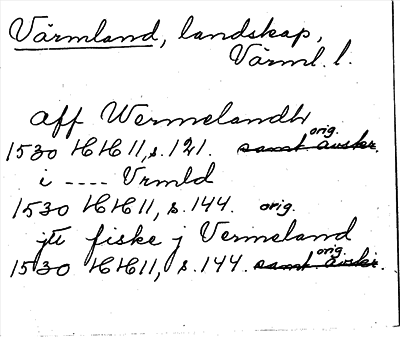 Värmland, landskap,
Värml. l.
aff Wermelandh
1530 HH 11, s. 121. orig. samt. avskr.
i ---- Vrmld
1530 HH 11, s. 144. orig.
jtt fiske j Vermeland
1530 HH 11, s. 144. orig. samt. avskr.